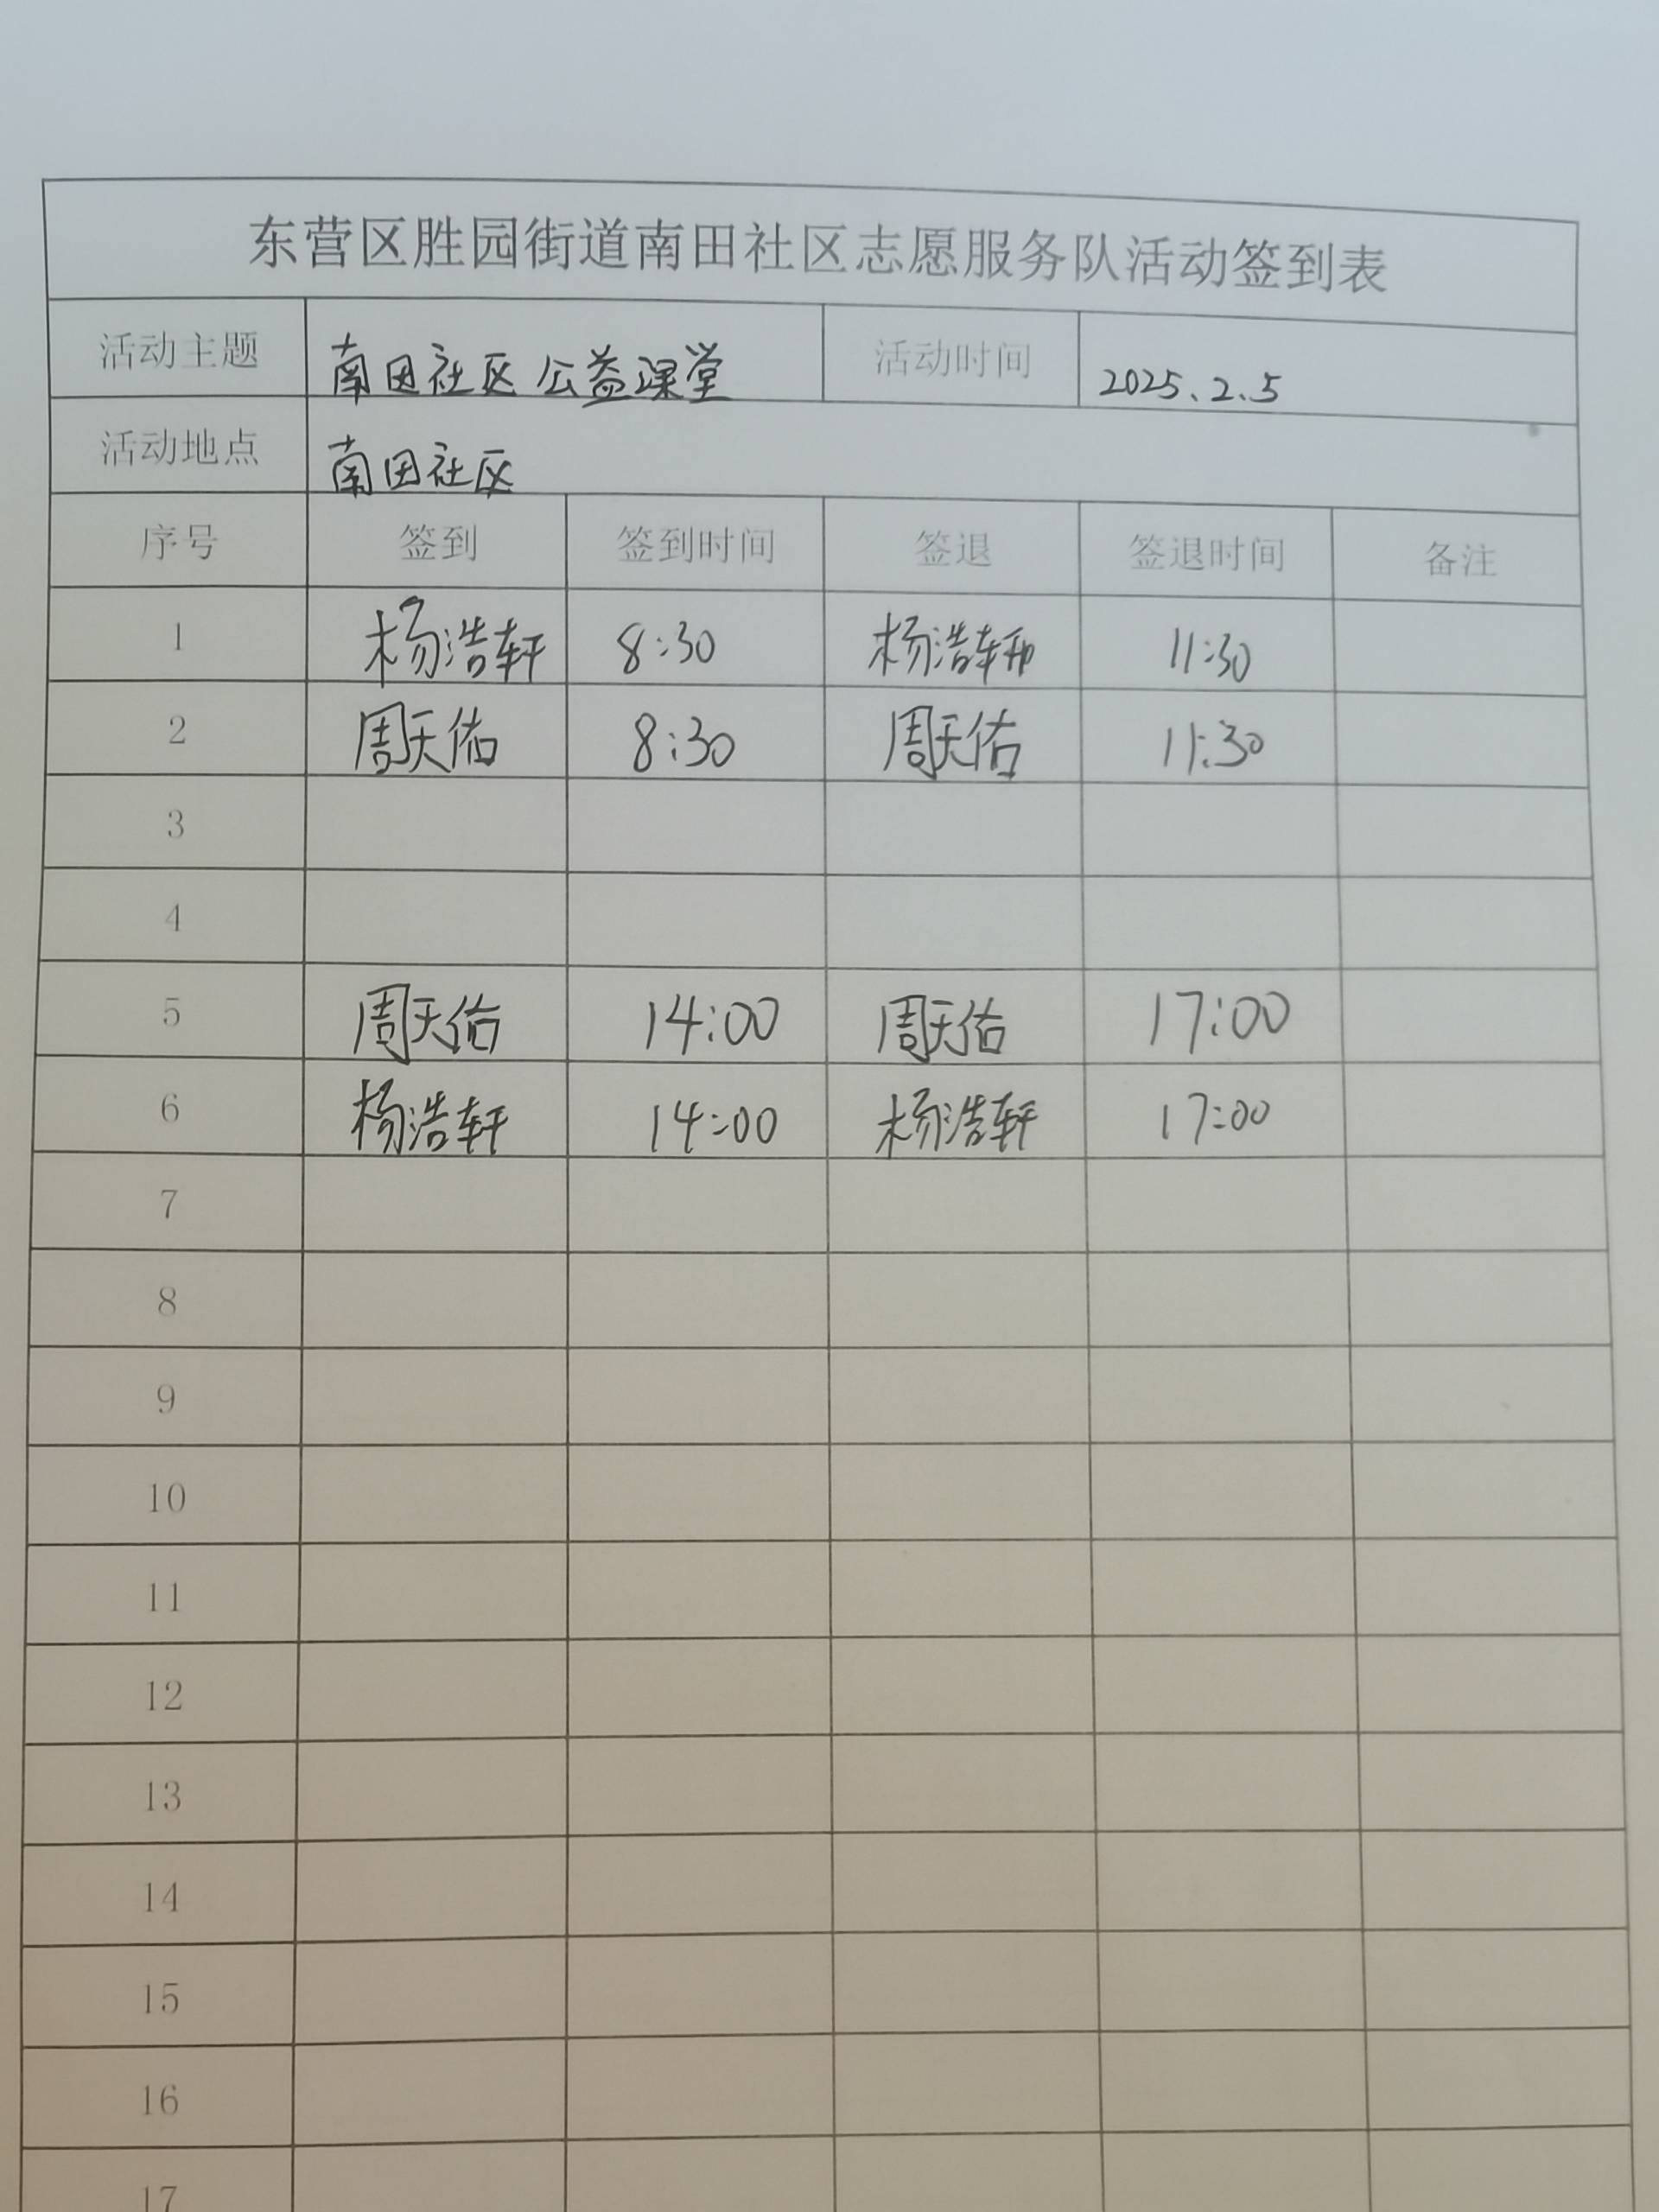 东营区胜园街道南田社区志愿服务队活动签到表
活动主题 南田社区公益课堂 活动时间 2025.2.5
活动地点 南田社区
序号 签到 签到时间 签退 签退时间 备注
1 杨浩轩 8:30 杨浩轩 11:30
2 周天佑 8:30 周天佑 11:30
3
4
5 周天佑 14:00 周天佑 17:00
6 杨浩轩 14:00 杨浩轩 17:00
7
8
9
10
11
12
13
14
15
16
17